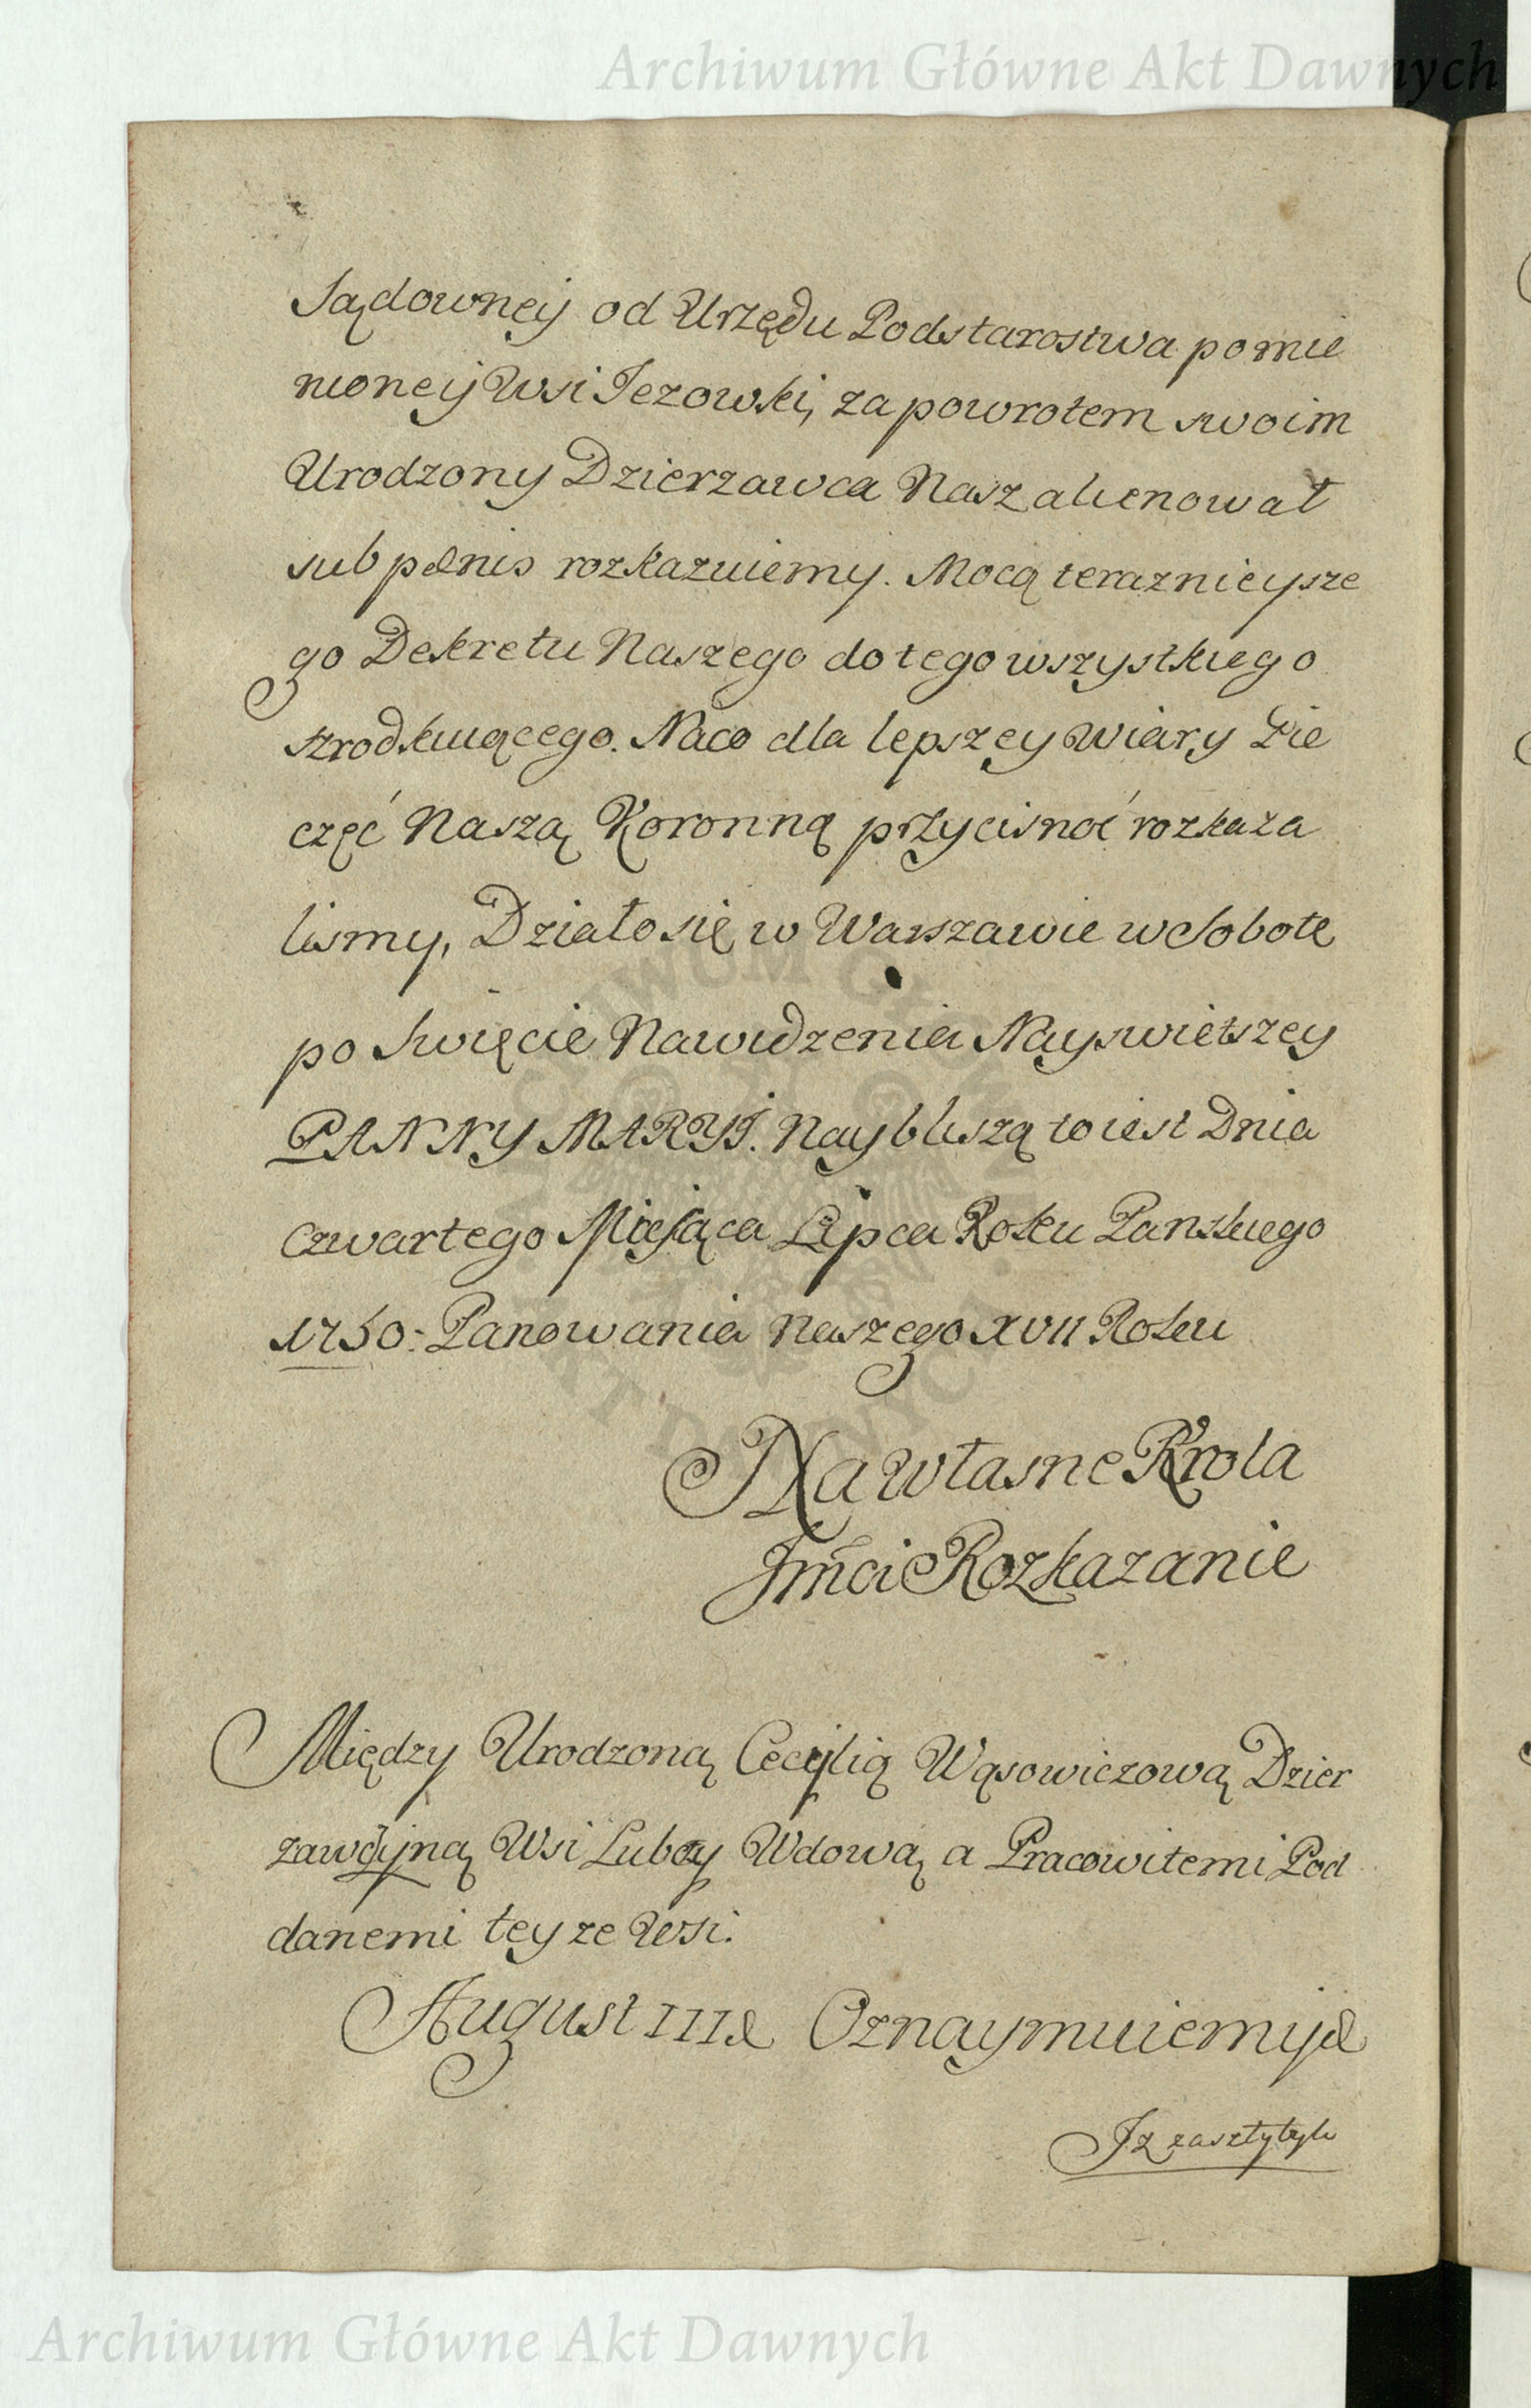 Archiwum Główne Akt Dawnych
Sądowney od Urzędu Podstarostwa pomie
nioney Wsi Jezowski, za powrotem swoim
Urodzony Dzierzawca Nasz alienował
sub pœnis rozkazuiemy. Mocą teraznieysze
go Dekretu Naszego do tego wszystkiego
szrodkuiącego. Naco dla lepszey Wiary Pie
częć Naszą Koronną przycisnoć rozkaza
lismy, Działo się w Warszawie w Sobotę
po Swięcie Nawidzenia Nayswietszey
PANNY MARYI. Naybliszą to iest Dnia
czwartego Miesiąca Lipca Roku Panskiego
1750: Panowania Naszego XVII Roku
Na Własne Krola
Jmci Rozkazanie
Między Urodzoną Cecylią Wąsowiczową Dzier
zawczyną Wsi Lubczy Wdową a Pracowitemi Pod
danemi tey ze Wsi.
August III & Oznaymuiemy &
Iz zaszłych
Archiwum Główne Akt Dawnych